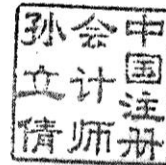 中国注册
会计师
孙立倩